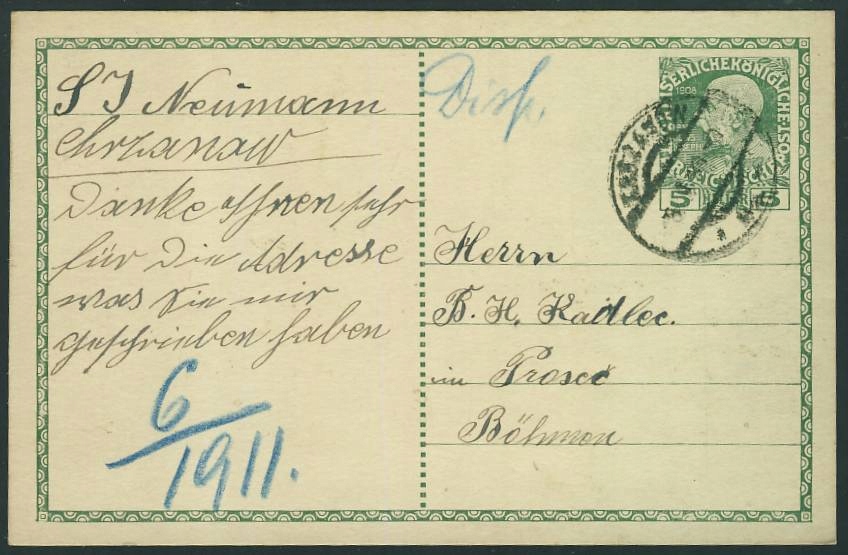 S J Neumann
Chrzanow
Danke Ihnen sehr
für die Adresse
was Sie mir
geschrieben haben
6/1911.
Disp.
KAISERLICHE KÖNIGLICHE
1908
5 5
Herrn
B. H. Kadlec.
in Proseč
Böhmen